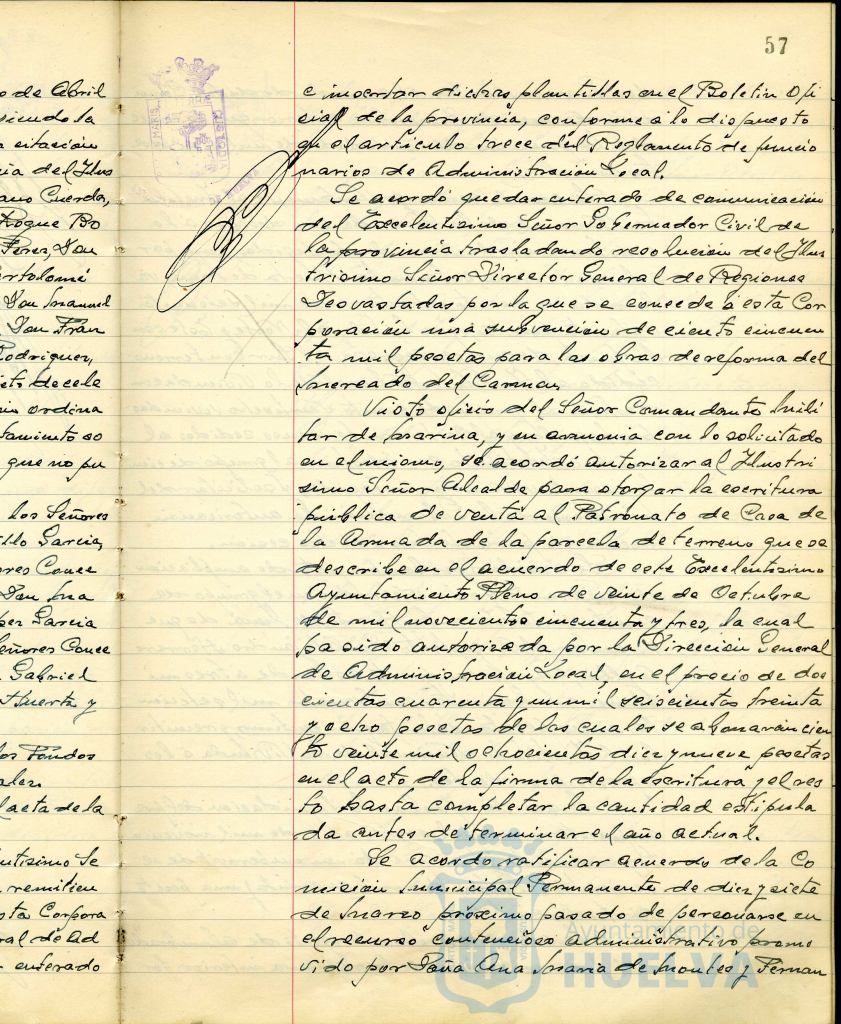 57
o de Abril
siendo la
a citación
ia del Ilus
ano Cuerda,
Roque Bo
Perez, Don
ertolomé
Don Manuel
Don Fran
Rodriguez,
eto de cele
ordina
tamiento so
que no pu
los Señores
llo Garcia,
ores Conce
Don Ma
Garcia
eñores Conce
Gabriel
Huerta y
los Fondos
l acta de la
ntisimo Se
remitien
sta Corpora
ral de Ad
enterado
e insertar dichas plantillas en el Boletin Ofi
cial de la provincia, conforme a lo dispuesto
en el articulo trece del Reglamento de funcio
narios de Administración Local.
Se acordó quedar enterado de comunicación
del Excelentisimo Señor Gobernador Civil de
la provincia trasladando resolución del Ilus
trisimo Señor Director General de Regiones
Devastadas por la que se concede a esta Cor
poración una subvención de ciento cincuen
ta mil pesetas para las obras de reforma del
Mercado del Carmen.
Visto oficio del Señor Comandante Mili
tar de Marina, y en armonia con lo solicitado
en el mismo, se acordó autorizar al Ilustri
simo Señor Alcalde para otorgar la escritura
pública de venta al Patronato de Casa de
la Armada de la parcela de terreno que se
describe en el acuerdo de este Excelentisimo
Ayuntamiento Pleno de veinte de Octubre
de mil novecientos cincuenta y tres, la cual
ha sido autorizada por la Dirección General
de Administración Local, en el precio de dos
cientas cuarenta y un mil seiscientas treinta
y ocho pesetas de las cuales se abonarán cien
to veinte mil ochocientas diez y nueve pesetas
en el acto de la firma de la escritura y el res
to hasta completar la cantidad estipula
da antes de terminar el año actual.
Se acordo ratificar acuerdo de la Co
misión Municipal Permanente de diez y siete
de Marzo próximo pasado de personarse en
el recurso contencioso administrativo promo
vido por Doña Ana Maria de Montes y Fernan
Ayuntamiento de
HUELVA